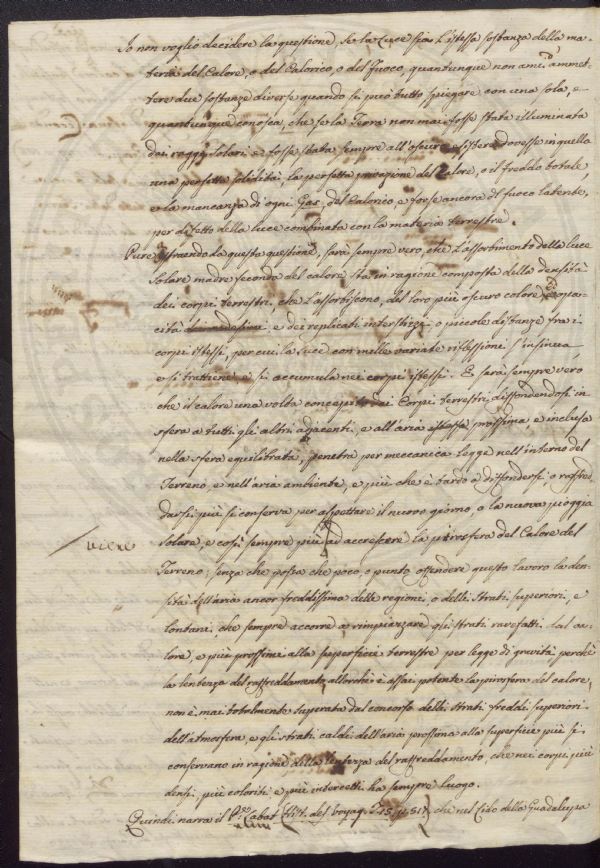 Io non voglio decidere la questione, se la Luce sia l'istessa sostanza della ma-
teria del Calore, o del Calorico, o del Fuoco, quantunque non ami ammet-
tere due sostanze diverse quando si può tutto spiegare con una sola, e
quantunque conosca, che se la Terra non mai fosse stata illuminata
dai raggi solari e fosse stata sempre all'oscuro esistere dovesse in quella
una perfetta solidità, la perfetta privazione del Calore, o il freddo totale
e la mancanza di ogni Gas, del Calorico, e forse ancora il fuoco latente,
per difetto della luce combinata con la materia terrestre.
Pure da questa questione, sarà sempre vero, che l'assorbimento della luce
Solare madre feconda del calore sta in ragione composta della densità
dei corpi terrestri, che l'assorbiscono, del loro più oscuro colore ed opa-
cità e dei replicati interstizi o piccole distanze fra i
corpi istessi, per cui la luce con mille variate riflessioni s'insinua
e si trattiene e si accumula nei corpi istessi. E sarà sempre vero
che il calore una volta concepito dai Corpi terrestri diffondendosi in
sfera a tutti gli altri adjacenti, e all'aria istessa prossima, e inclusa
nella sfera equilibrata, penetra per meccanica legge nell'interno del
Terreno, e nell'aria ambiente, e più che è tardo a diffondersi o raffred
darsi più si conserva per aspettare il nuovo giorno, o la nuova pioggia
viene
Solare, e così sempre più ad accrescere la pirosfera del Calore del
Terreno; senza che possa che poco, o punto offendere questo lavoro la den-
sità dell'aria ancor freddissima delle regioni, o delli strati superiori, e
lontani, che sempre accorre a rimpiazzare gli strati rarefatti dal ca-
lore, e più prossimi alla superficie terrestre per legge di gravità: perchè
la lentezza del raffreddamento allorchè è assai potente la pirosfera del calore,
non è mai totalmente superata dal concorso delli strati freddi superiori
dell'atmosfera, e gli strati caldi dell'aria prossima alla superficie più si
conservano in ragione della lentezza del raffreddamento, che nei corpi più
densi, più coloriti e più intercetti ha sempre luogo.
Quindi narra il P. Labat che nel Lido della Guadalupa